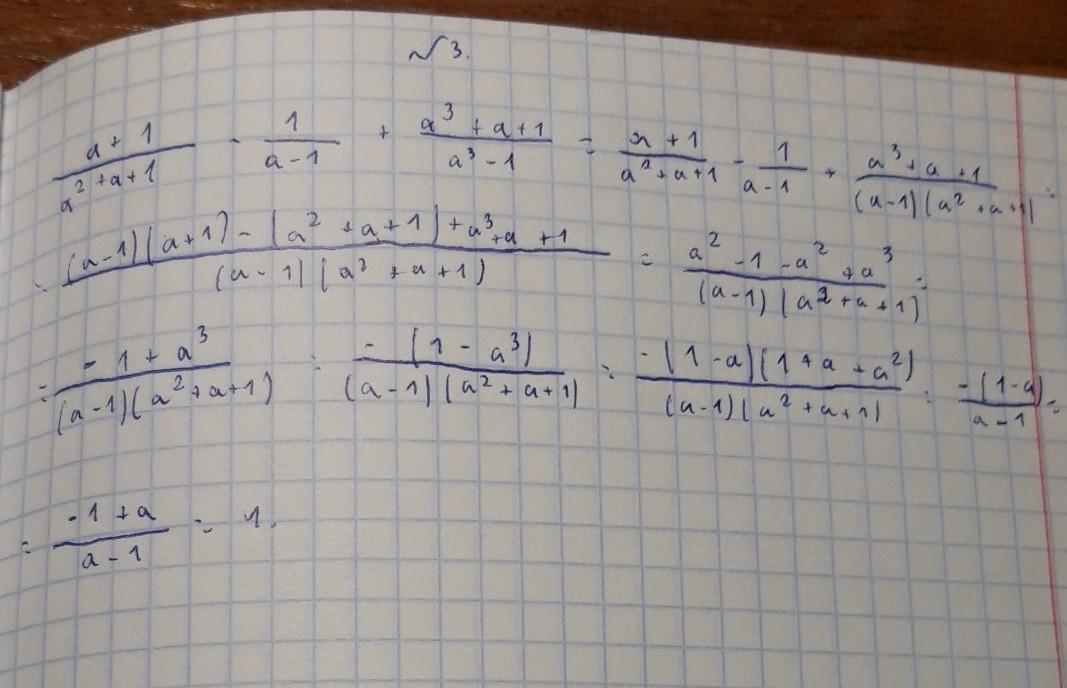 №3.
\frac{a+1}{a^2+a+1} - \frac{1}{a-1} + \frac{a^3+a+1}{a^3-1} = \frac{a+1}{a^2+a+1} - \frac{1}{a-1} + \frac{a^3+a+1}{(a-1)(a^2+a+1)} =
= \frac{(a-1)(a+1)-(a^2+a+1)+a^3+a+1}{(a-1)(a^2+a+1)} = \frac{a^2-1-a^2+a^3}{(a-1)(a^2+a+1)} =
= \frac{-1+a^3}{(a-1)(a^2+a+1)} = \frac{-(1-a^3)}{(a-1)(a^2+a+1)} = \frac{-(1-a)(1+a+a^2)}{(a-1)(a^2+a+1)} = \frac{-(1-a)}{a-1} =
= \frac{-1+a}{a-1} = 1.